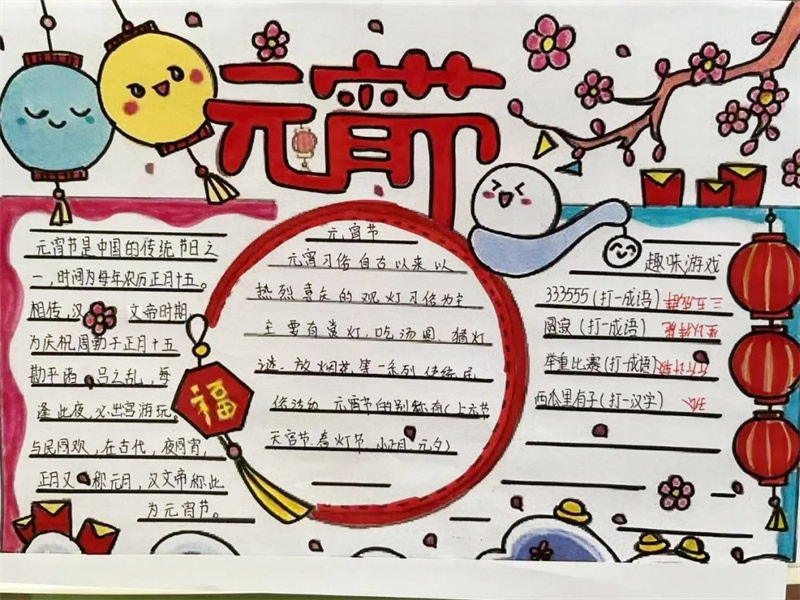 元宵节
元宵节是中国的传统节日之
一,时间为每年农历正月十五。
相传,汉 文帝时期,
为庆祝周勃于正月十五
勘平诸 吕之乱,每
逢此夜,必出宫游玩,
与民同欢,在古代,夜同宵,
正月又 称元月,汉文帝称此
为元宵节。
元宵节
元宵习俗自古以来以
热烈喜庆的观灯习俗为主
主要有赏灯,吃汤圆,猜灯
谜、放烟花等一系列传统民
俗活动 元宵节的别称有(上元节
天官节、春灯节、小正月、元夕)
福
趣味游戏
333555(打一成语)三五成群
圆寂(打一成语)
举重比赛(打一成语)斤斤计较
西瓜里有子(打一汉字)孤